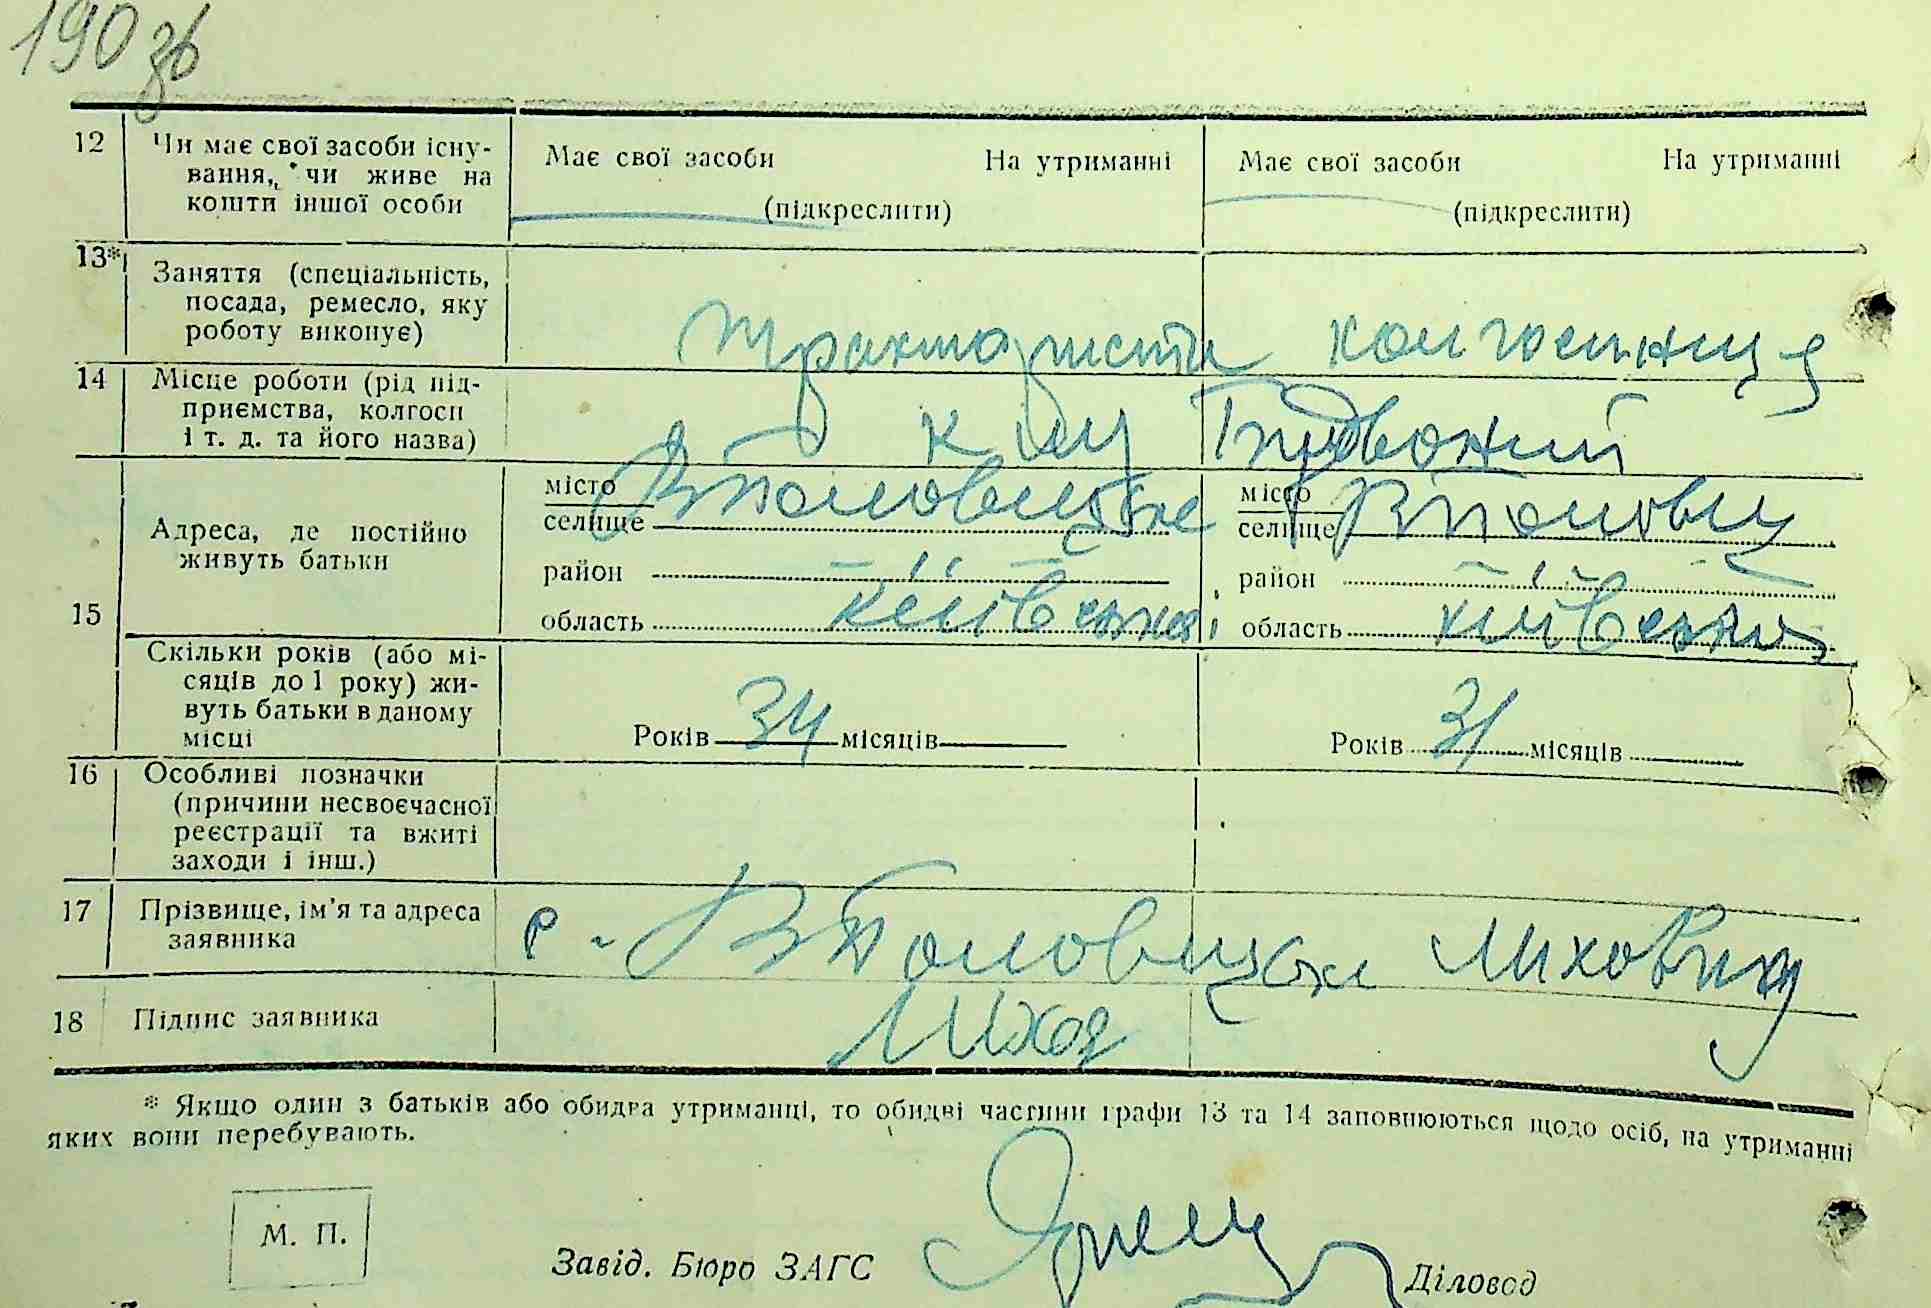 190 зв
12 Чи має свої засоби існу-
вання, чи живе на
кошти іншої особи
Має свої засоби На утриманні
(підкреслити)
Має свої засоби На утриманні
(підкреслити)
13* Заняття (спеціальність,
посада, ремесло, яку
роботу виконує)
тракториста колгоспниця
14 Місце роботи (рід під-
приємства, колгосп
і т. д. та його назва)
15 Адреса, де постійно
живуть батьки
місто
селище В Половецьке
район
область київська
місто
селище В Половец
район
область київська
Скільки років (або мі-
сяців до 1 року) жи-
вуть батьки в даному
місці
Років 34 місяців
Років 31 місяців
16 Особливі позначки
(причини несвоєчасної
реєстрації та вжиті
заходи і інш.)
17 Прізвище, ім'я та адреса
заявника
с. В Половецьке
18 Підпис заявника
* Якщо один з батьків або обидва утриманці, то обидві частини графи 13 та 14 заповнюються щодо осіб, на утриманні
яких вони перебувають.
М. П.
Завід. Бюро ЗАГС
Діловод